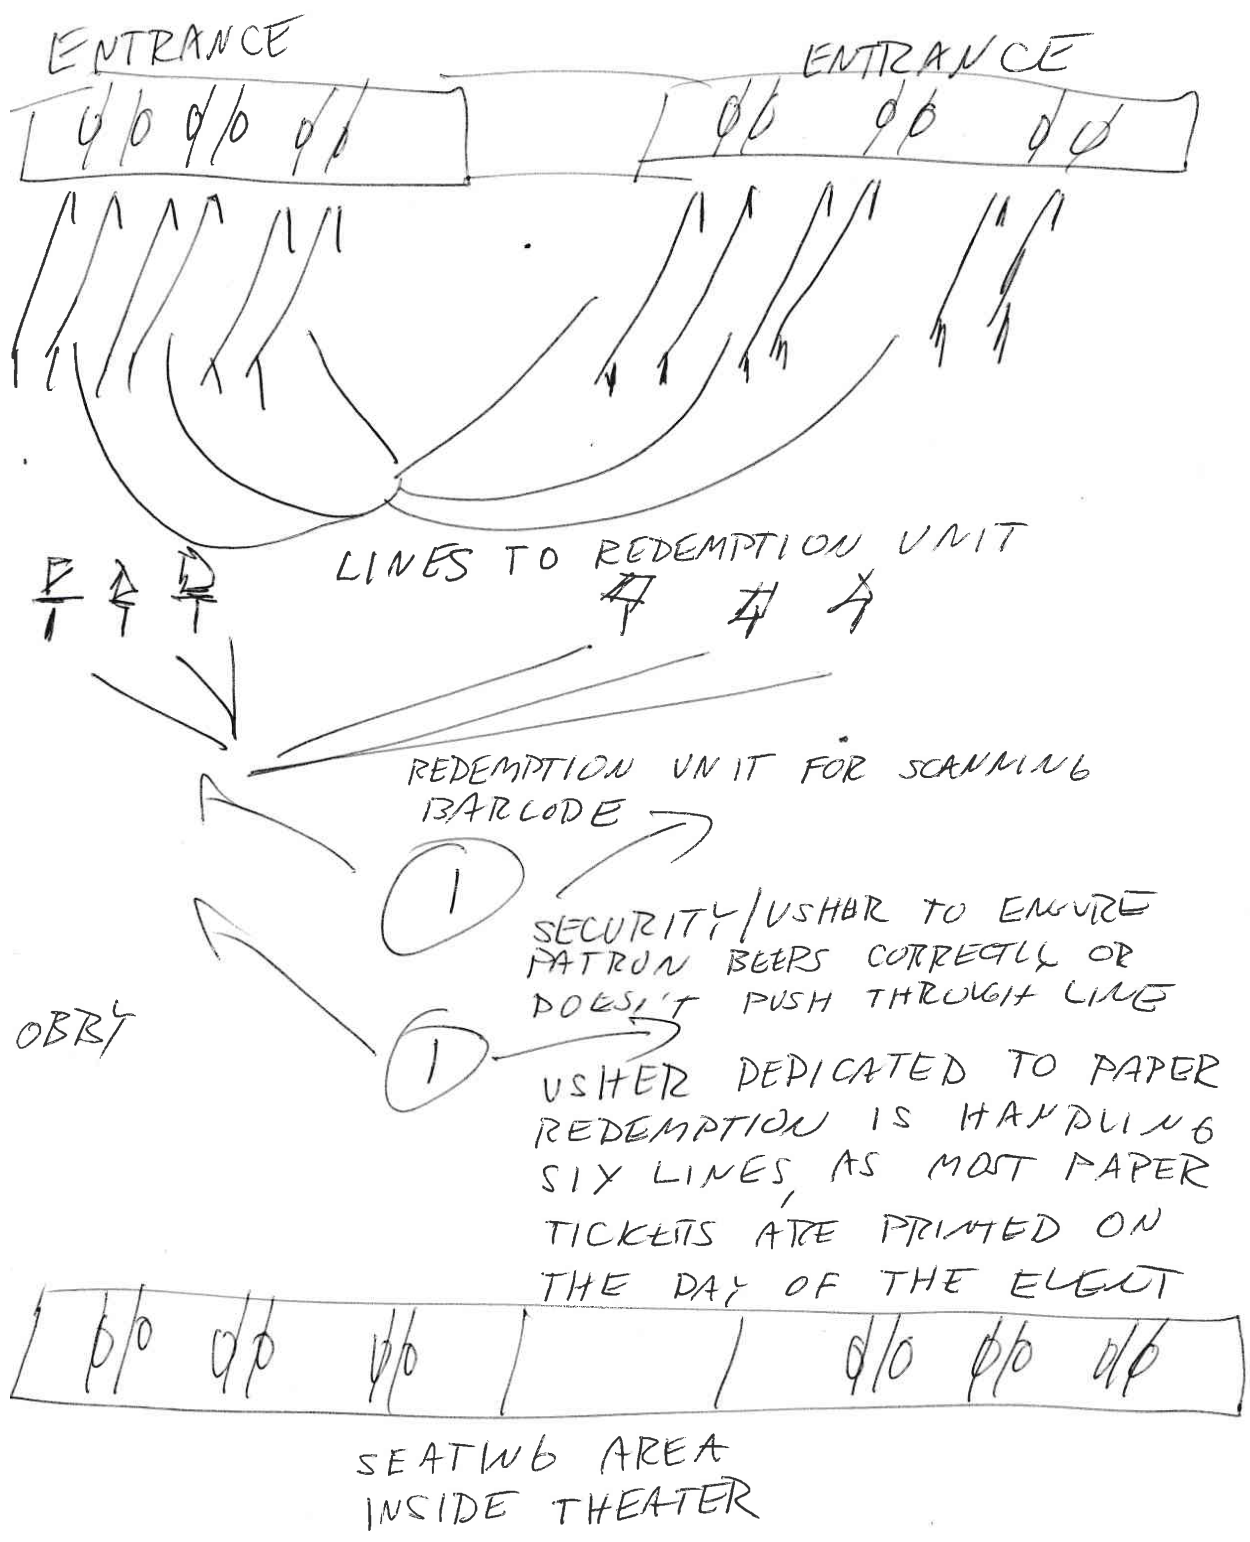 ENTRANCE
ENTRANCE
LINES TO REDEMPTION UNIT
REDEMPTION UNIT FOR SCANNING
BARCODE
1
SECURITY/USHER TO ENSURE
PATRON BEEPS CORRECTLY OR
DOESN'T PUSH THROUGH LINE
OBBY
1
USHER DEDICATED TO PAPER
REDEMPTION IS HANDLING
SIX LINES, AS MOST PAPER
TICKETS ARE PRINTED ON
THE DAY OF THE EVENT
SEATING AREA
INSIDE THEATER